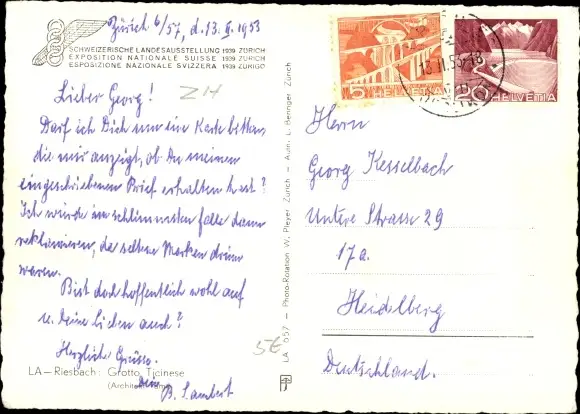 Zürich 6/57, d. 13. II. 1953
SCHWEIZERISCHE LANDESAUSSTELLUNG 1939 ZÜRICH
EXPOSITION NATIONALE SUISSE 1939 ZURICH
ESPOSIZIONE NAZIONALE SVIZZERA 1939 ZURIGO
ZH
Lieber Georg!
Darf ich Dich um eine Karte bitten,
die mir anzeigt, ob Du meinen
eingeschriebenen Brief erhalten hast?
Ich würde im schlimmsten falle dann
reklamieren, da seltene Marken drinn
waren.
Bist doch hoffentlich wohl auf
u. Deine Lieben auch?
Herzliche Grüsse.
Dein B. Lambert
LA—Riesbach: Grotto Ticinese
5€
LA 657 - Photo-Rotation W. Pleyer, Zürich - Auth. L. Beringer, Zürich
5 HELVETIA
20 HELVETIA
13.II.53-18
Herrn
Georg Kesselbach
Untere Strasse 29
17a.
Heidelberg
Deutschland.